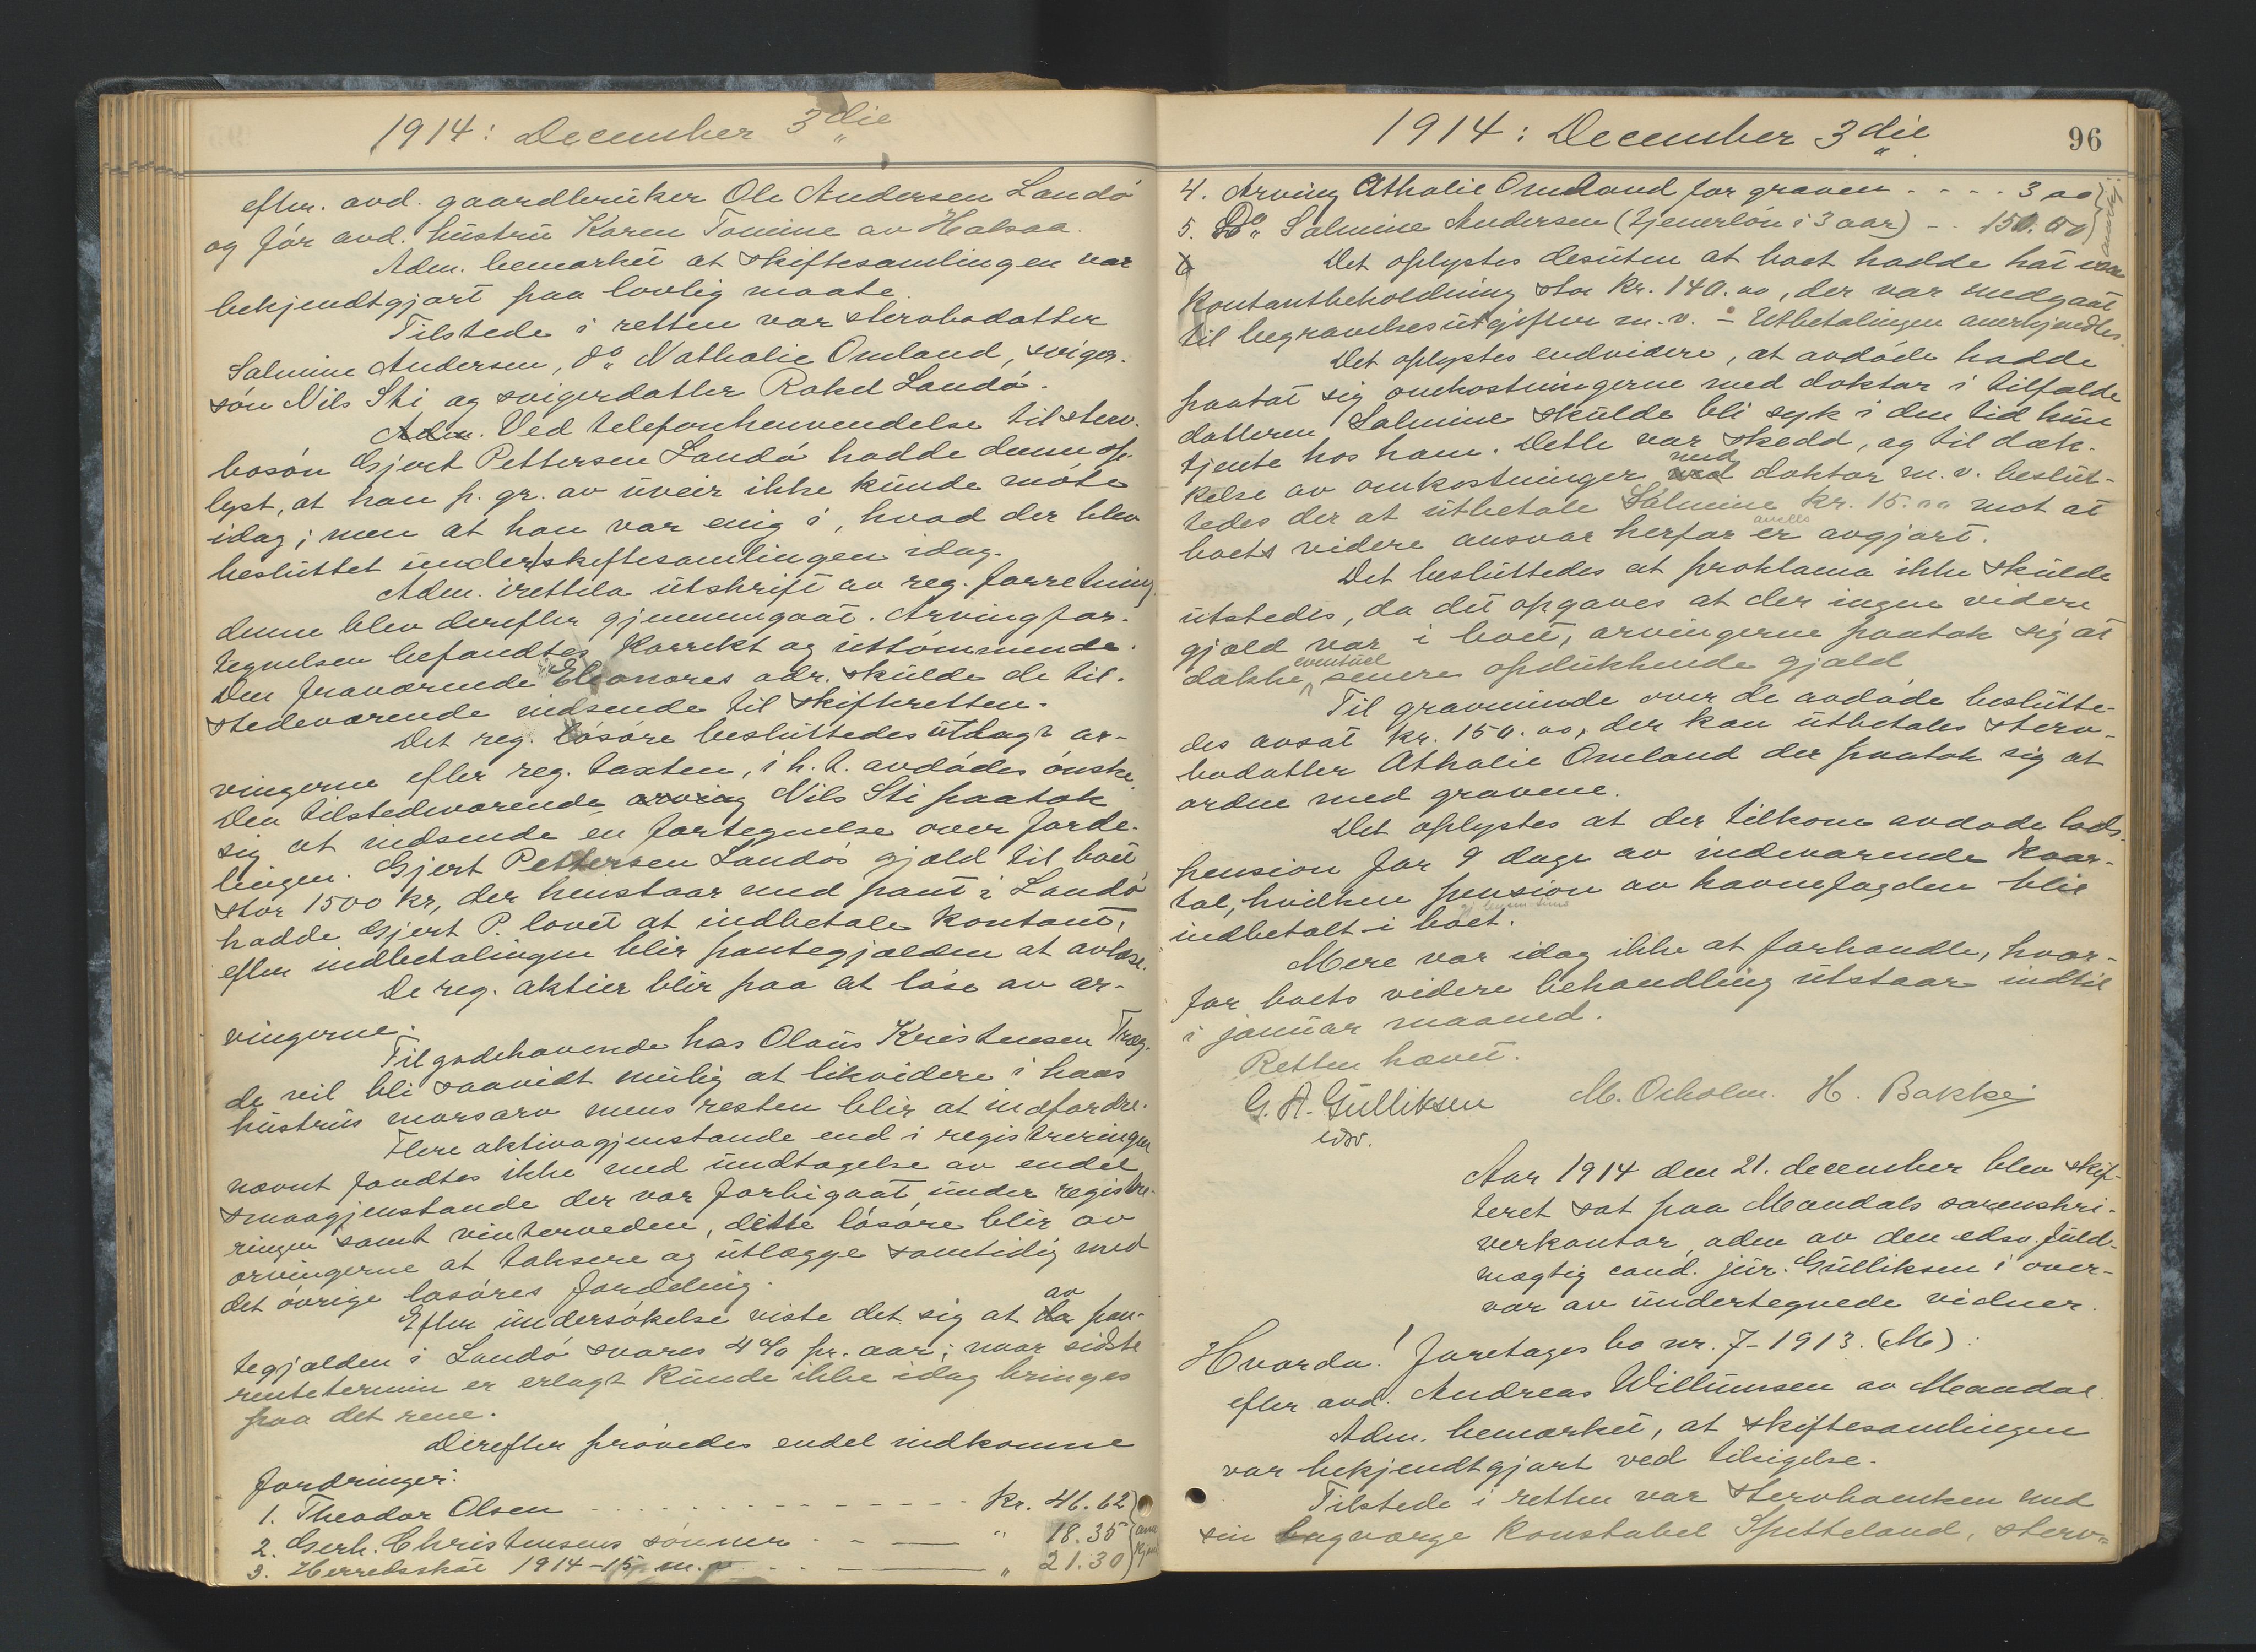 1914: December 3die
efter. avd. gaardbruker Ole Andersen Landö
og för avd. hustru Karen Tomine av Halsaa.
Adm. bemærket at skiftesamlingen var
bekjendtgjort paa lovlig maate.
Tilstede i retten var sterbodatter
Salmine Andersen, do Nathalie Omland, sviger-
sön Nils Sti og svigerdatter Rakel Landö.
Adm. Ved telefonhenvendelse til sterv-
bosön Gjert Pettersen Landö hadde denne op-
lyst, at han p. gr. av uveir ikke kunde möte
idag; men at han var enig i, hvad der blev
besluttet under skiftesamlingen idag.
Adm. irettela utskrift av reg. forretning
denne blev derefter gjennemgaat. Arvingfor-
tegnelsen befandtes korrekt og uttömmende.
Den fraværende Eleonores adr. skulde de til-
stedeværende indsende til skifteretten.
Det reg. lösöre besluttedes utlagt ar-
vingerne efter reg. taxten, i h. t. avdödes önske
Den tilstedeværende arving Nils Sti paatok
sig at indsende en fortegnelse over forde-
lingen. Gjert Pettersen Landös gjæld til boet
stor 1500 kr, der henstaar med pant i Landö
hadde Gjert P. lovet at indbetale kontant,
efter indbetalingen blir pantegjælden at avlæse.
De reg. aktier blir paa at löse av ar-
vingerne.
Tilgodehavende hos Olaus Kristensen Træg-
de vil bli saavidt mulig at likvidere i hans
hustrus morsarv mens resten blir at indfordre.
Flere aktivagjenstande end i registreringen
nævnt fandtes ikke med undtagelse av endel
smaagjenstande der var forbigaat under registre-
ringen samt vinterveden, dette lösöre blir av
arvingerne at taksere og utlægge samtidig med
det övrige lösöres fordeling.
Efter undersökelse viste det sig at av pan-
tegjælden i Landö svares 4% pr. aar; naar sidste
rentetermin er erlagt kunde ikke idag bringes
paa det rene.
Derefter prövedes endel indkomne
fordringer:
1. Theodor Olsen - - - kr. 46.62
2. Gerh. Christensens sönner - - — " 18.35
3. Herredsskat 1914-15 m. v. - — " 21.30
1914: December 3die
96
4. Arving Athalie Omland for graven - - - - 3 00
5. Do Salmine Andersen (tjenerlön i 3 aar) - - 150.00
Det oplystes desuten at boet hadde hat en
kontantbeholdning stor kr. 140.00, der var medgaat
til begravelsesutgifter m. v. - Utbetalingen anerkjendtes.
Det oplystes endvidere, at avdöde hadde
paatat sig omkostningerne med doktor i tilfælde
datteren Salmine skulde bli syk i den tid hun
tjente hos ham. Dette var skedd, og til dæk-
kelse av omkostninger med doktor m. v. beslut-
tedes der at utbetale Salmine kr. 15.00 mot at
boets videre ansvar herfor er avgjort.
Det besluttedes at proklama ikke skulde
utstedes, da det opgaves at der ingen videre
gjæld var i boet, arvingerne paatok sig at
dække eventuel senere opdukkende gjæld
Til gravminde over de avdöde beslutte-
des avsat kr. 150.00, der kan utbetales sterv-
bodatter Athalie Omland der paatok sig at
ordne med gravene.
Det oplystes at der tilkom avdöde lods-
pension for 9 dage av indeværende kvar-
tal, hvilken pension av havnefogden blir
indbetalt i boet.
Mere var idag ikke at forhandle, hvor-
for boets videre behandling utstaar indtil
i januar maaned.
Retten hævet.
G. A. Gulliksen M. Orholm. H. Bakke
edsv.
Aar 1914 den 21. december blev skif-
teret sat paa Mandals sorenskri-
verkontor, adm av den edsv. fuld-
mægtig cand. jur. Gulliksen i over-
vær av undertegnede vidner.
Hvorda! Foretages bo nr. 7-1913. (M):
efter avd. Andreas Willumsen av Mandal.
Adm. bemærket, at skiftesamlingen
var bekjendtgjort ved tilsigelse.
Tilstede i retten var stervboenken med
sin lagværge konstabel Spetteland, sterv-